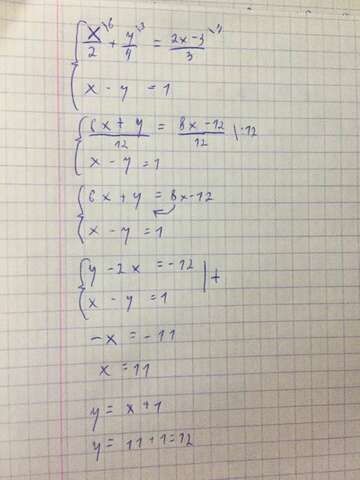 x/2 \6 + y/4 \3 = (2x-3)/3 \4
x - y = 1
(6x + y)/12 = (8x - 12)/12 | ·12
x - y = 1
6x + y = 8x - 12
x - y = 1
y - 2x = -12
x - y = 1 | +
-x = -11
x = 11
y = x + 1
y = 11 + 1 = 12